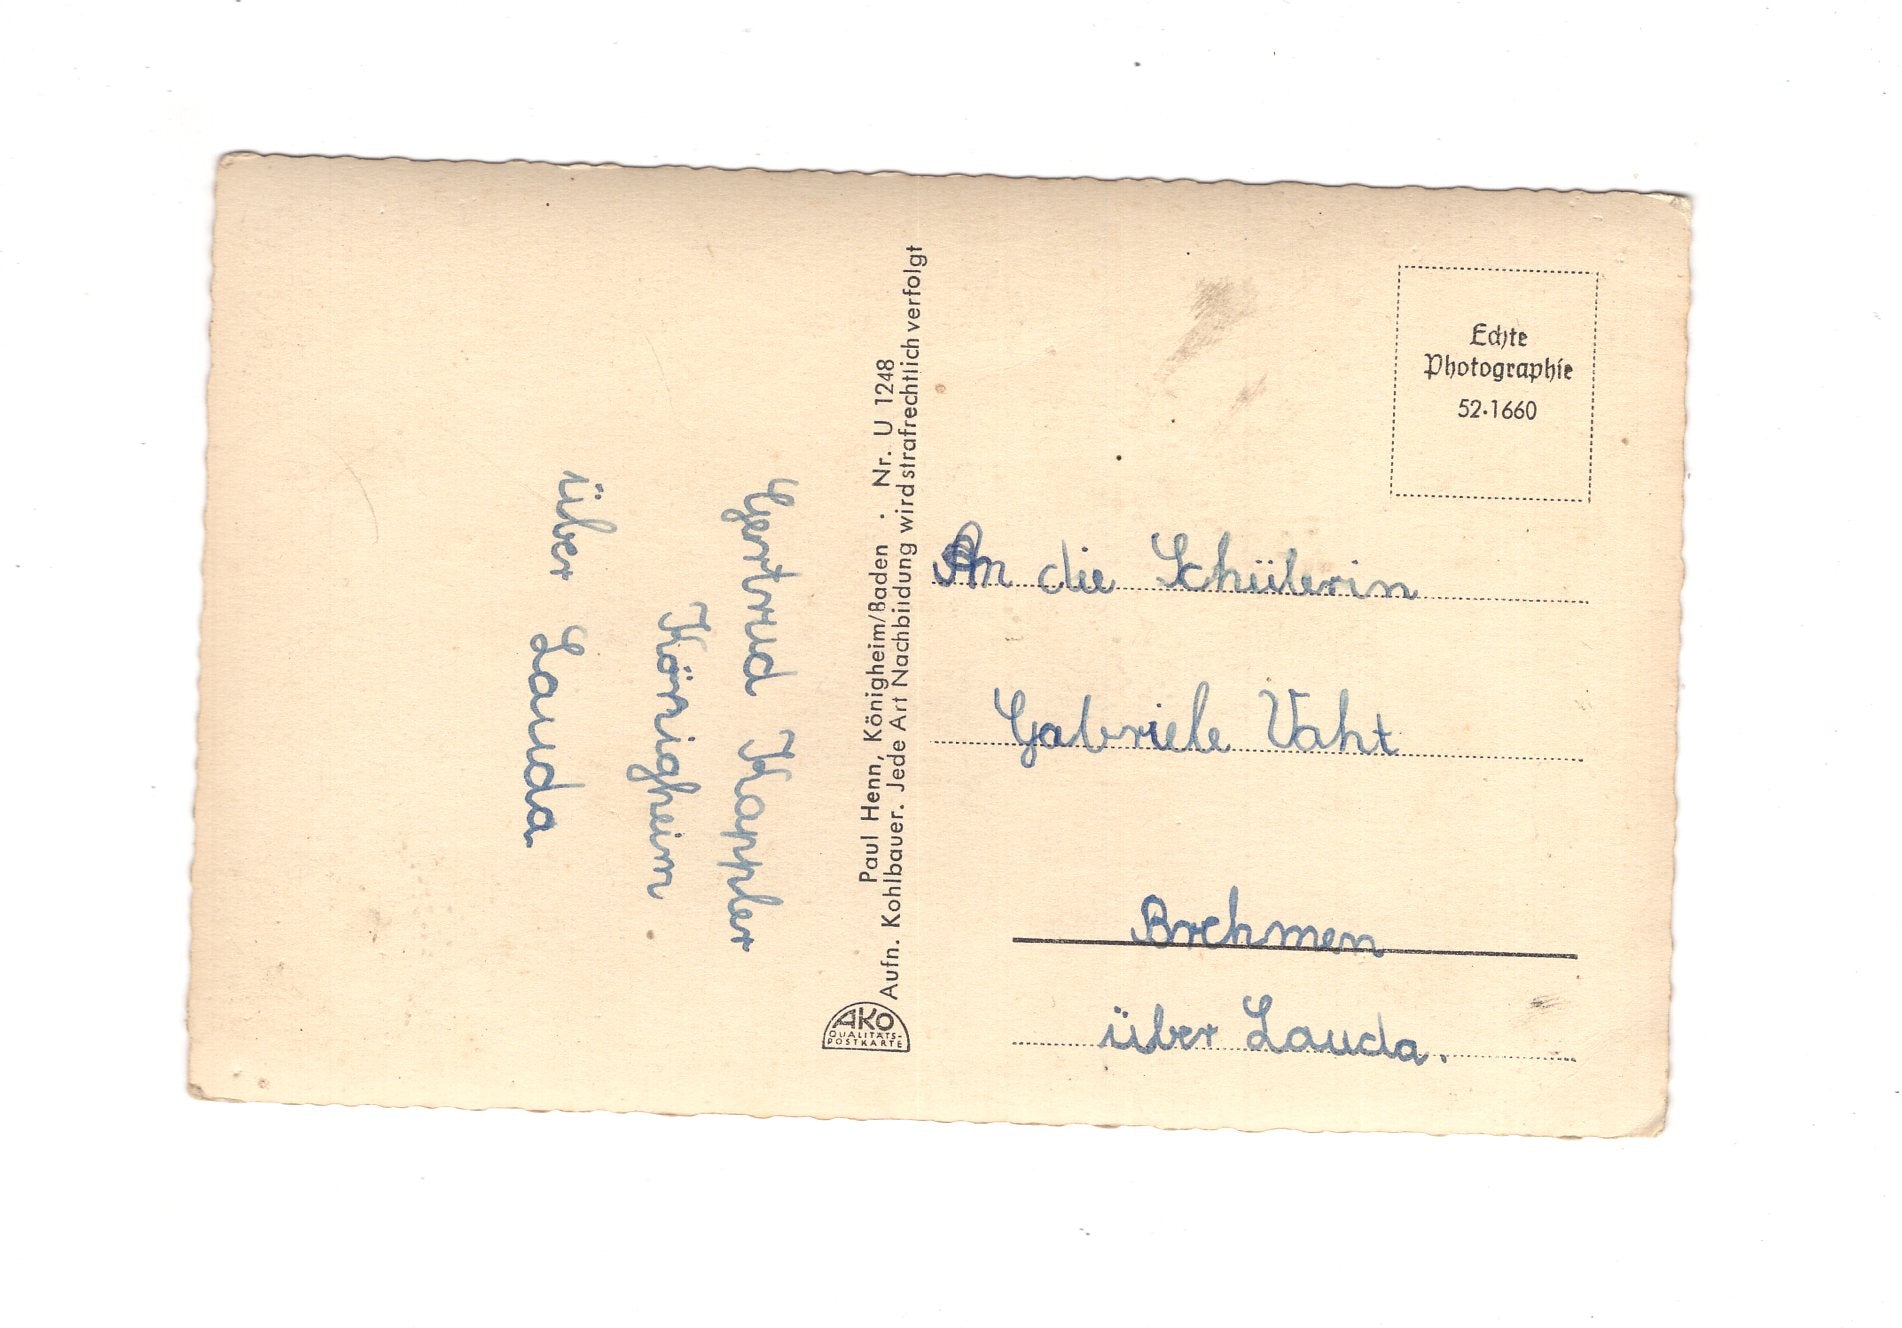 Gertrud Kappler
Königheim
über Lauda
Paul Henn, Königheim/Baden · Nr. U 1248
Aufn. Kohlbauer. Jede Art Nachbildung wird strafrechtlich verfolgt
AKO
QUALITÄTS-
POSTKARTE
Echte
Photographie
52·1660
An die Schülerin
Gabriele Vaht
Brehmen
über Lauda.